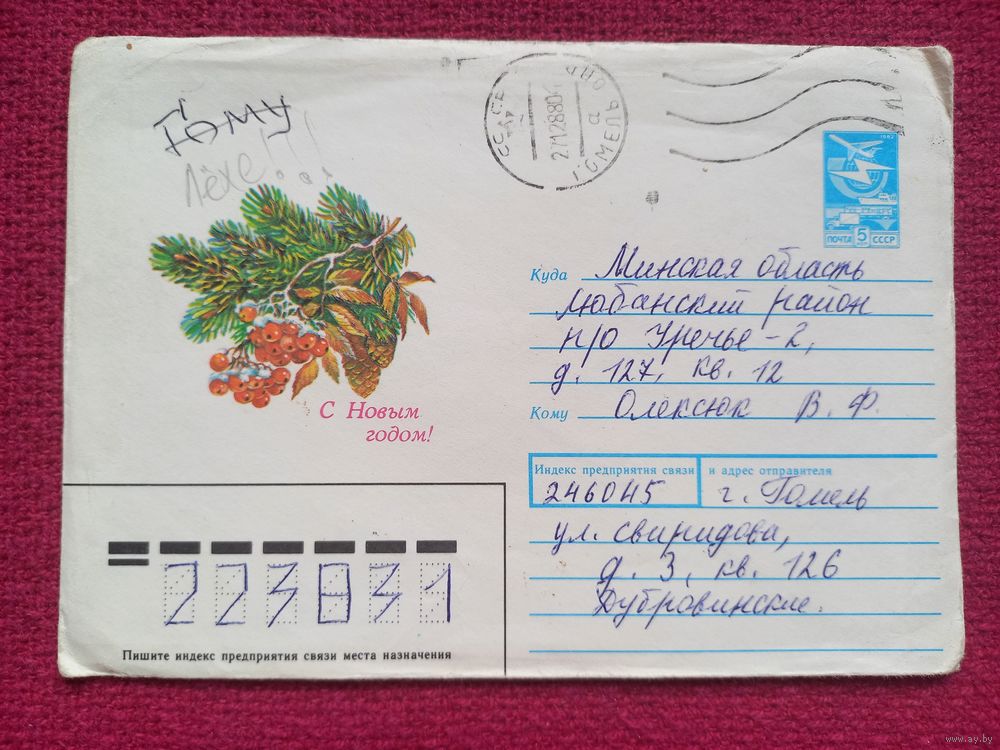 Тому
Лёхе!!...
С Новым
годом!
ГОМЕЛЬ
а
1982
ПОЧТА 5 СССР
Куда Минская область
Любанский район
п/о Уречье-2,
д. 127, кв. 12
Кому Олексюк В. Ф.
Индекс предприятия связи и адрес отправителя
246045 г. Гомель
ул. Свиридова,
д. 3, кв. 126
Дубровинские.
223831
Пишите индекс предприятия связи места назначения
www.ay.by